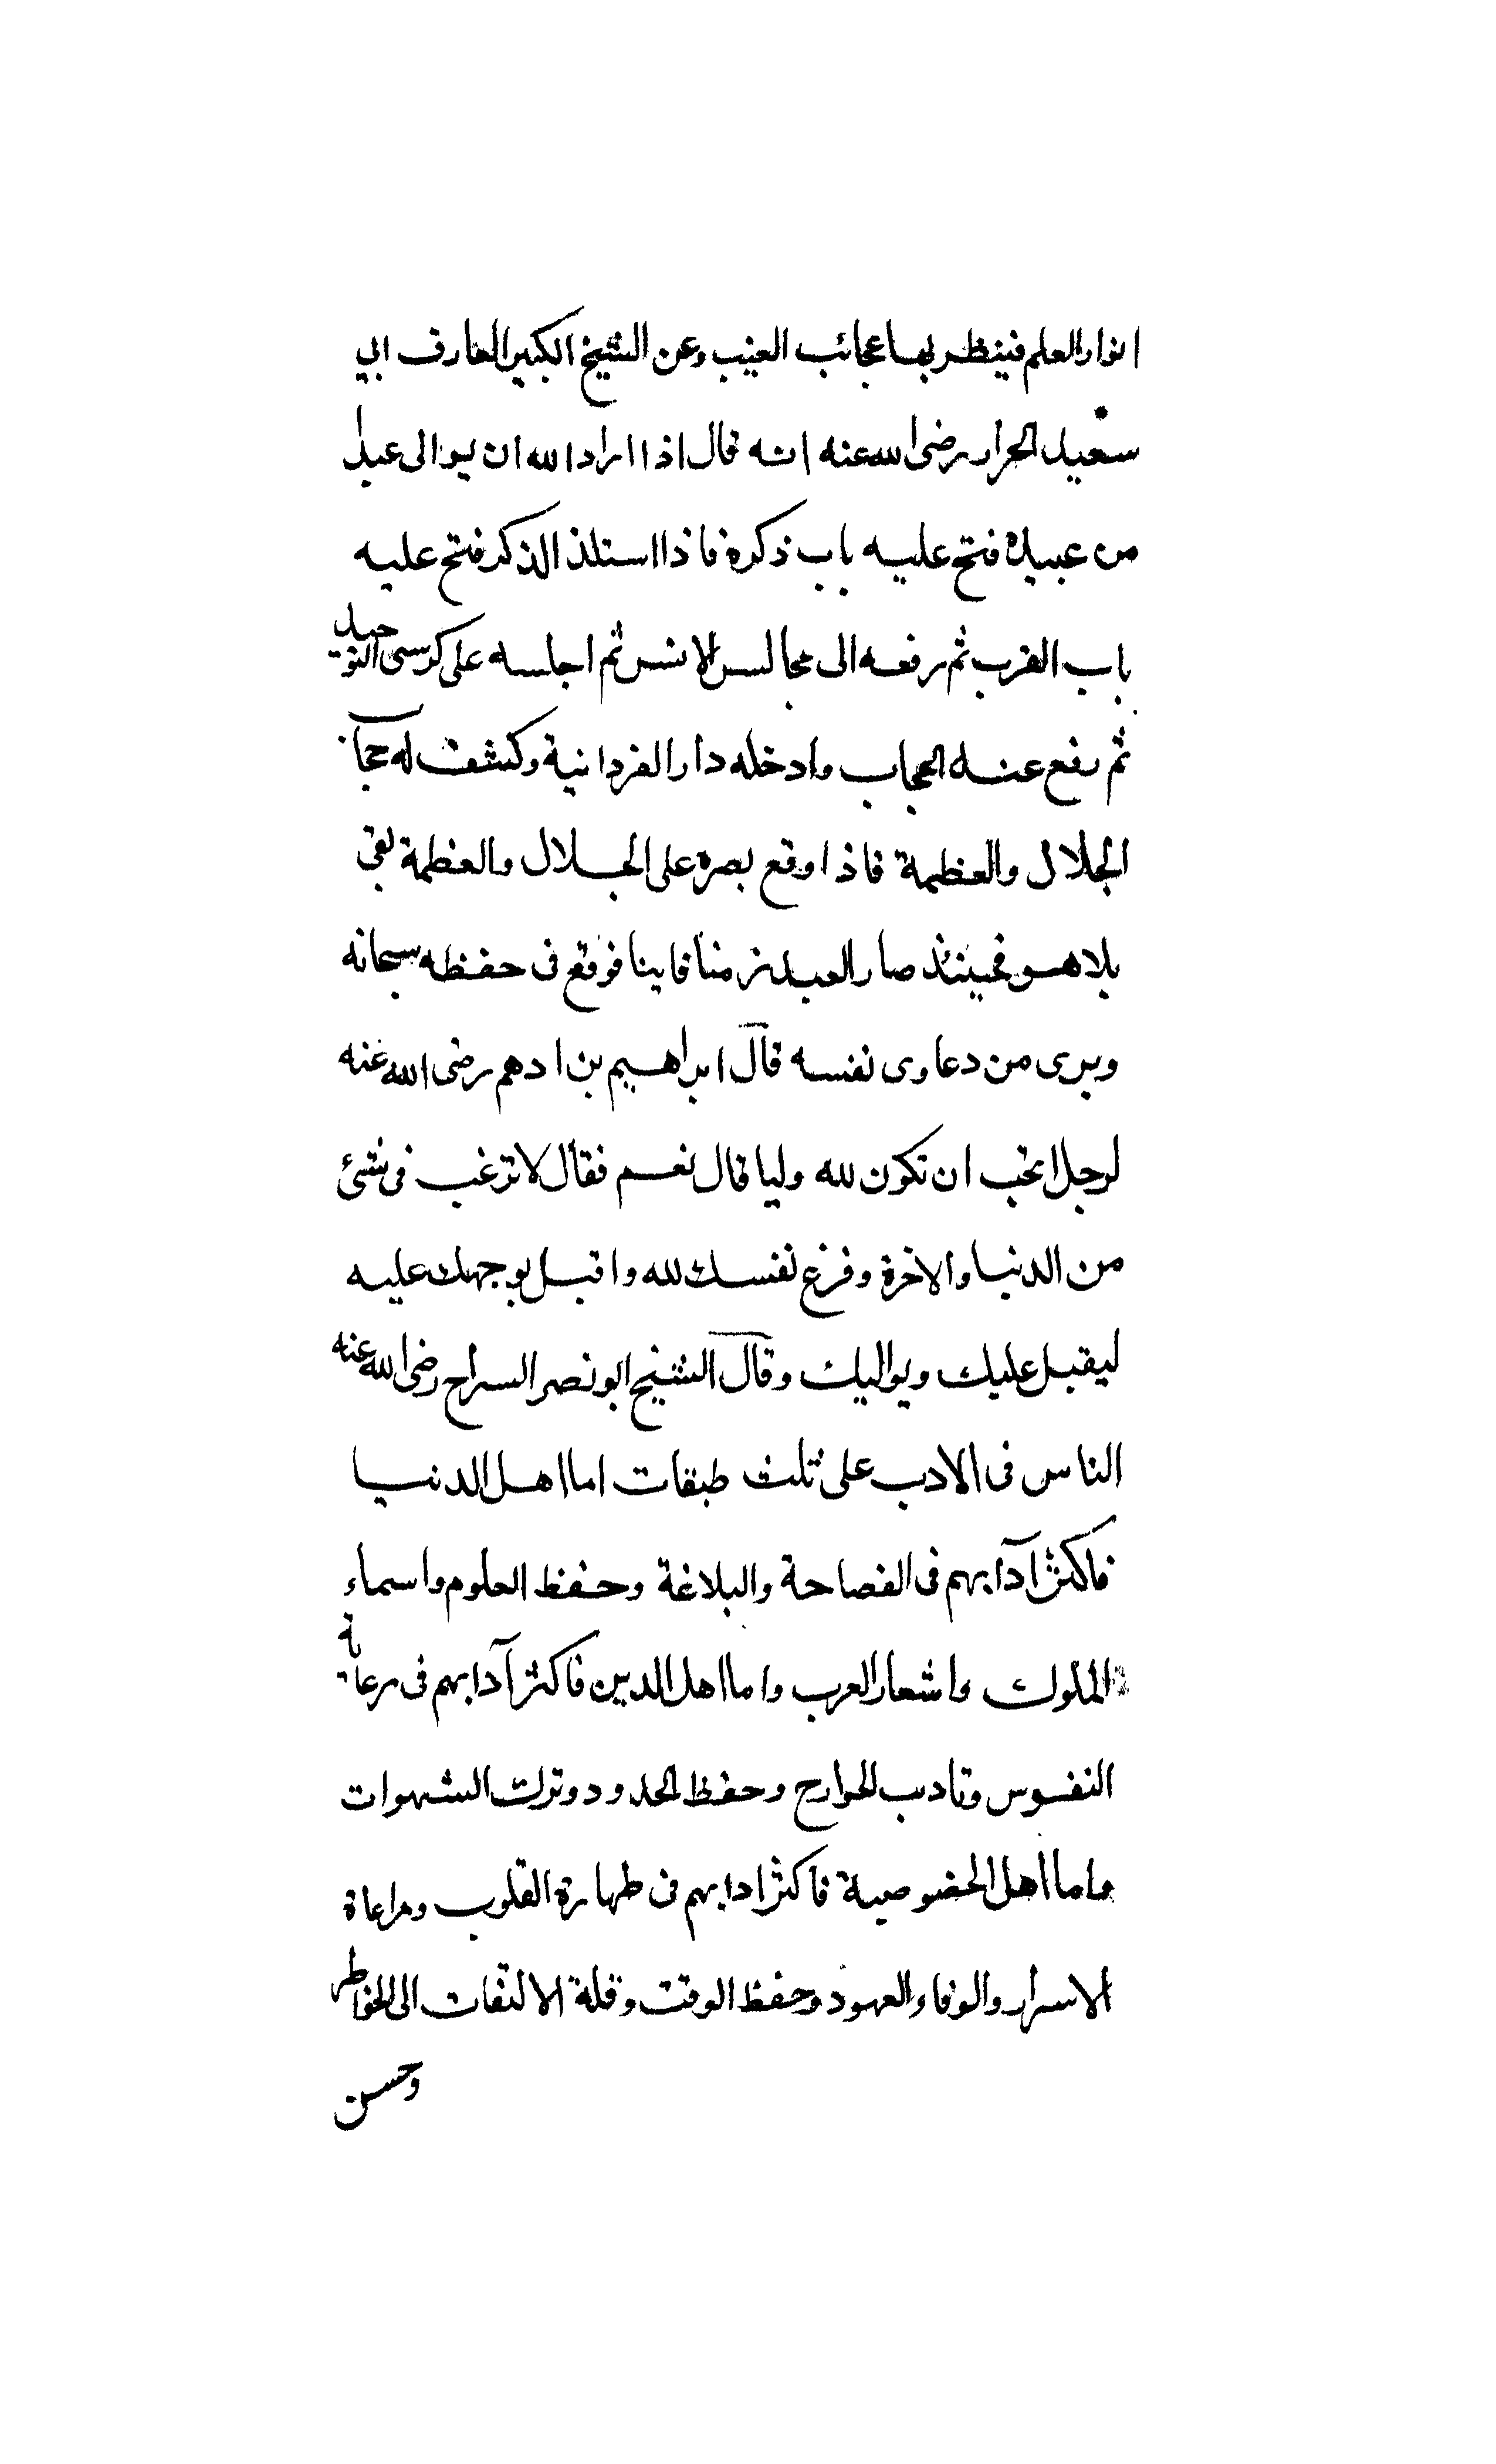 انوار العلم فينظر بها عجائب الغيب وعن الشيخ الكبير العارف ابي
سعيد الخراز رضى الله عنه انه قال اذا اراد الله ان يوالى عبدا
من عبيده فتح عليه باب ذكره فاذا استلذ الذكر فتح عليه
باب القرب ثم رفعه الى مجالس الانس ثم اجلسه على كرسى التوحيد
ثم رفع عنه الحجاب وادخله دار الفردانية وكشف له حجاب
الجلال والعظمة فاذا وقع بصره على الجلال والعظمة بقى
بلا هو فحينئذ صار العبد زمنا فانيا فوقع فى حفظه سبحانه
وبرى من دعاوى نفسه قال ابراهيم بن ادهم رضى الله عنه
لرجل اتحب ان تكون لله وليا قال نعم فقال لا ترغب فى شئ
من الدنيا والاخرة وفرغ نفسك لله واقبل بوجهك عليه
ليقبل عليك ويواليك وقال الشيخ ابو نصر السراج رضى الله عنه
الناس فى الادب على ثلث طبقات اما اهل الدنيا
فاكثر آدابهم فى الفصاحة والبلاغة وحفظ العلوم واسماء
الملوك واشعار العرب واما اهل الدين فاكثر آدابهم فى رعاية
النفوس وتاديب الجوارح وحفظ الحدود وترك الشهوات
واما اهل الخصوصية فاكثر ادابهم فى طهارة القلوب ومراعاة
الاسرار والوفاء العهود وحفظ الوقت وقلة الالتفات الى الخواطر
وحسن